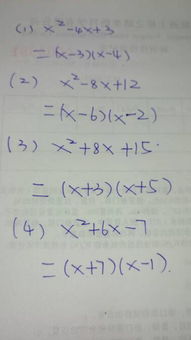 (1) x²-4x+3
=(x-3)(x-4)
(2) x²-8x+12
=(x-6)(x-2)
(3) x²+8x+15
=(x+3)(x+5)
(4) x²+6x-7
=(x+7)(x-1).